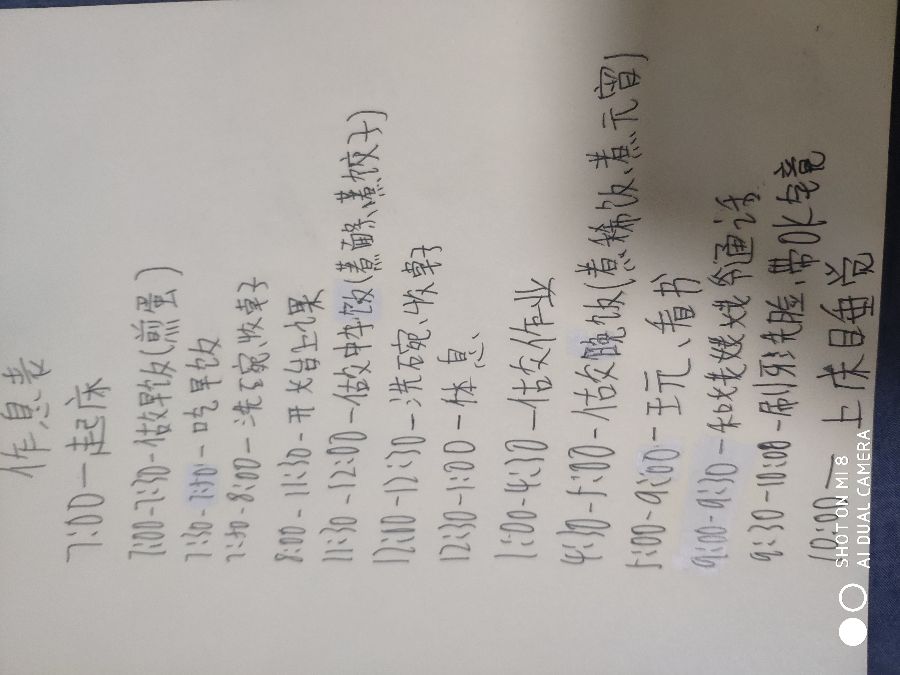 作息表
7:00—起床
7:00-7:30-做早饭(煎蛋)
7:30-7:50-吃早饭
7:50-8:00-洗碗、收桌子
8:00-11:30-开始上课
11:30-12:00-做中午饭(煮面条、煮饺子)
12:00-12:30-洗碗、收桌子
12:30-1:00-休息、
1:00-4:30-做作业
4:30-5:00-做晚饭(煮稀饭、煮元宵)
5:00-9:00-玩、看书
9:00-9:30-和爸爸通话
9:30-10:00-刷牙洗脸、带OK镜
10:00— 上床睡觉
SHOT ON MI 8
AI DUAL CAMERA